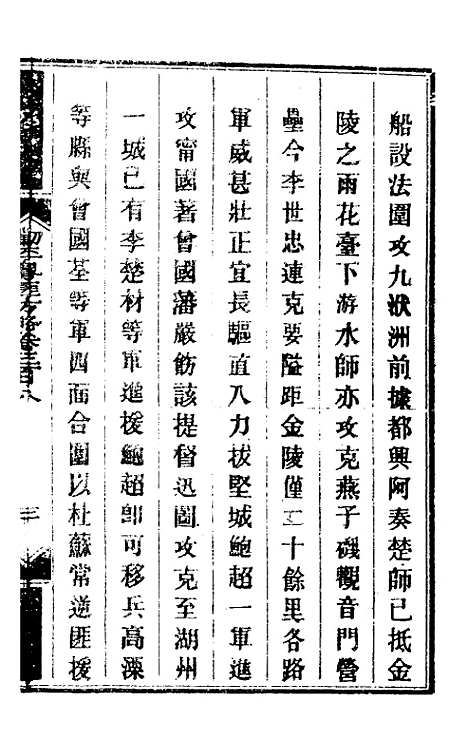 船設法圍攻九洑洲前據都興阿奏楚師已抵金
陵之雨花臺下游水師亦攻克燕子磯觀音門營
壘今李世忠連克要隘距金陵僅二十餘里各路
軍威甚壯正宜長驅直入力拔堅城鮑超一軍進
攻甯國著曾國藩嚴飭該提督迅圖攻克至湖州
一城已有李楚材等軍進援鮑超卽可移兵高溧
等縣與曾國荃等軍四面合圍以杜蘇常逆匪援